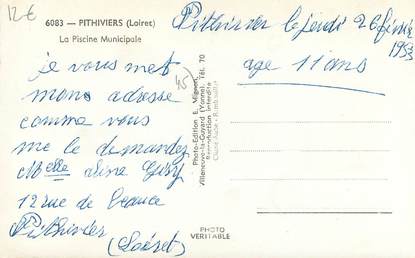 12€
6083 — PITHIVIERS (Loiret)
La Piscine Municipale
Pithivier le jeudi 26 février
1953
age 11 ans
je vous met
mon adresse
comme vous
me le demandez
Melle
12 rue de Beauce
Pithivier
(Loiret)
(45)
Photo-Edition E. Mignon,
Villeneuve-la-Guyard (Yonne) Tél. 70
Reproduction interdite
PHOTO
VERITABLE